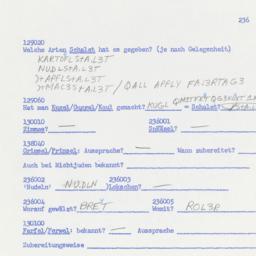 236
129020
Welche Arten Schalet hat es gegeben? (je nach Gelegenheit)
KARTOFLSTA.L3T
NUDLSTA.L3T
APFLSTA.L3T
MAC3STA.L3T / QALL APPLY FA13RTAG3
129060
Hat man Kugel/Guggel/Kaul gemacht? KUGL = Schalet?
130010 236001
Zimmes? —
138040
Grimsel/Frimsel: Aussprache? — Wann zubereitet?
Auch bei Nichtjuden bekannt?
236002 236003
'Nudeln' NUDLN Lokschen? —
236004 236005
Worauf gewälzt? BRET Womit? ROL3R
130100
Farfel/Ferwel: bekannt? — Aussprache
Zubereitungsweise